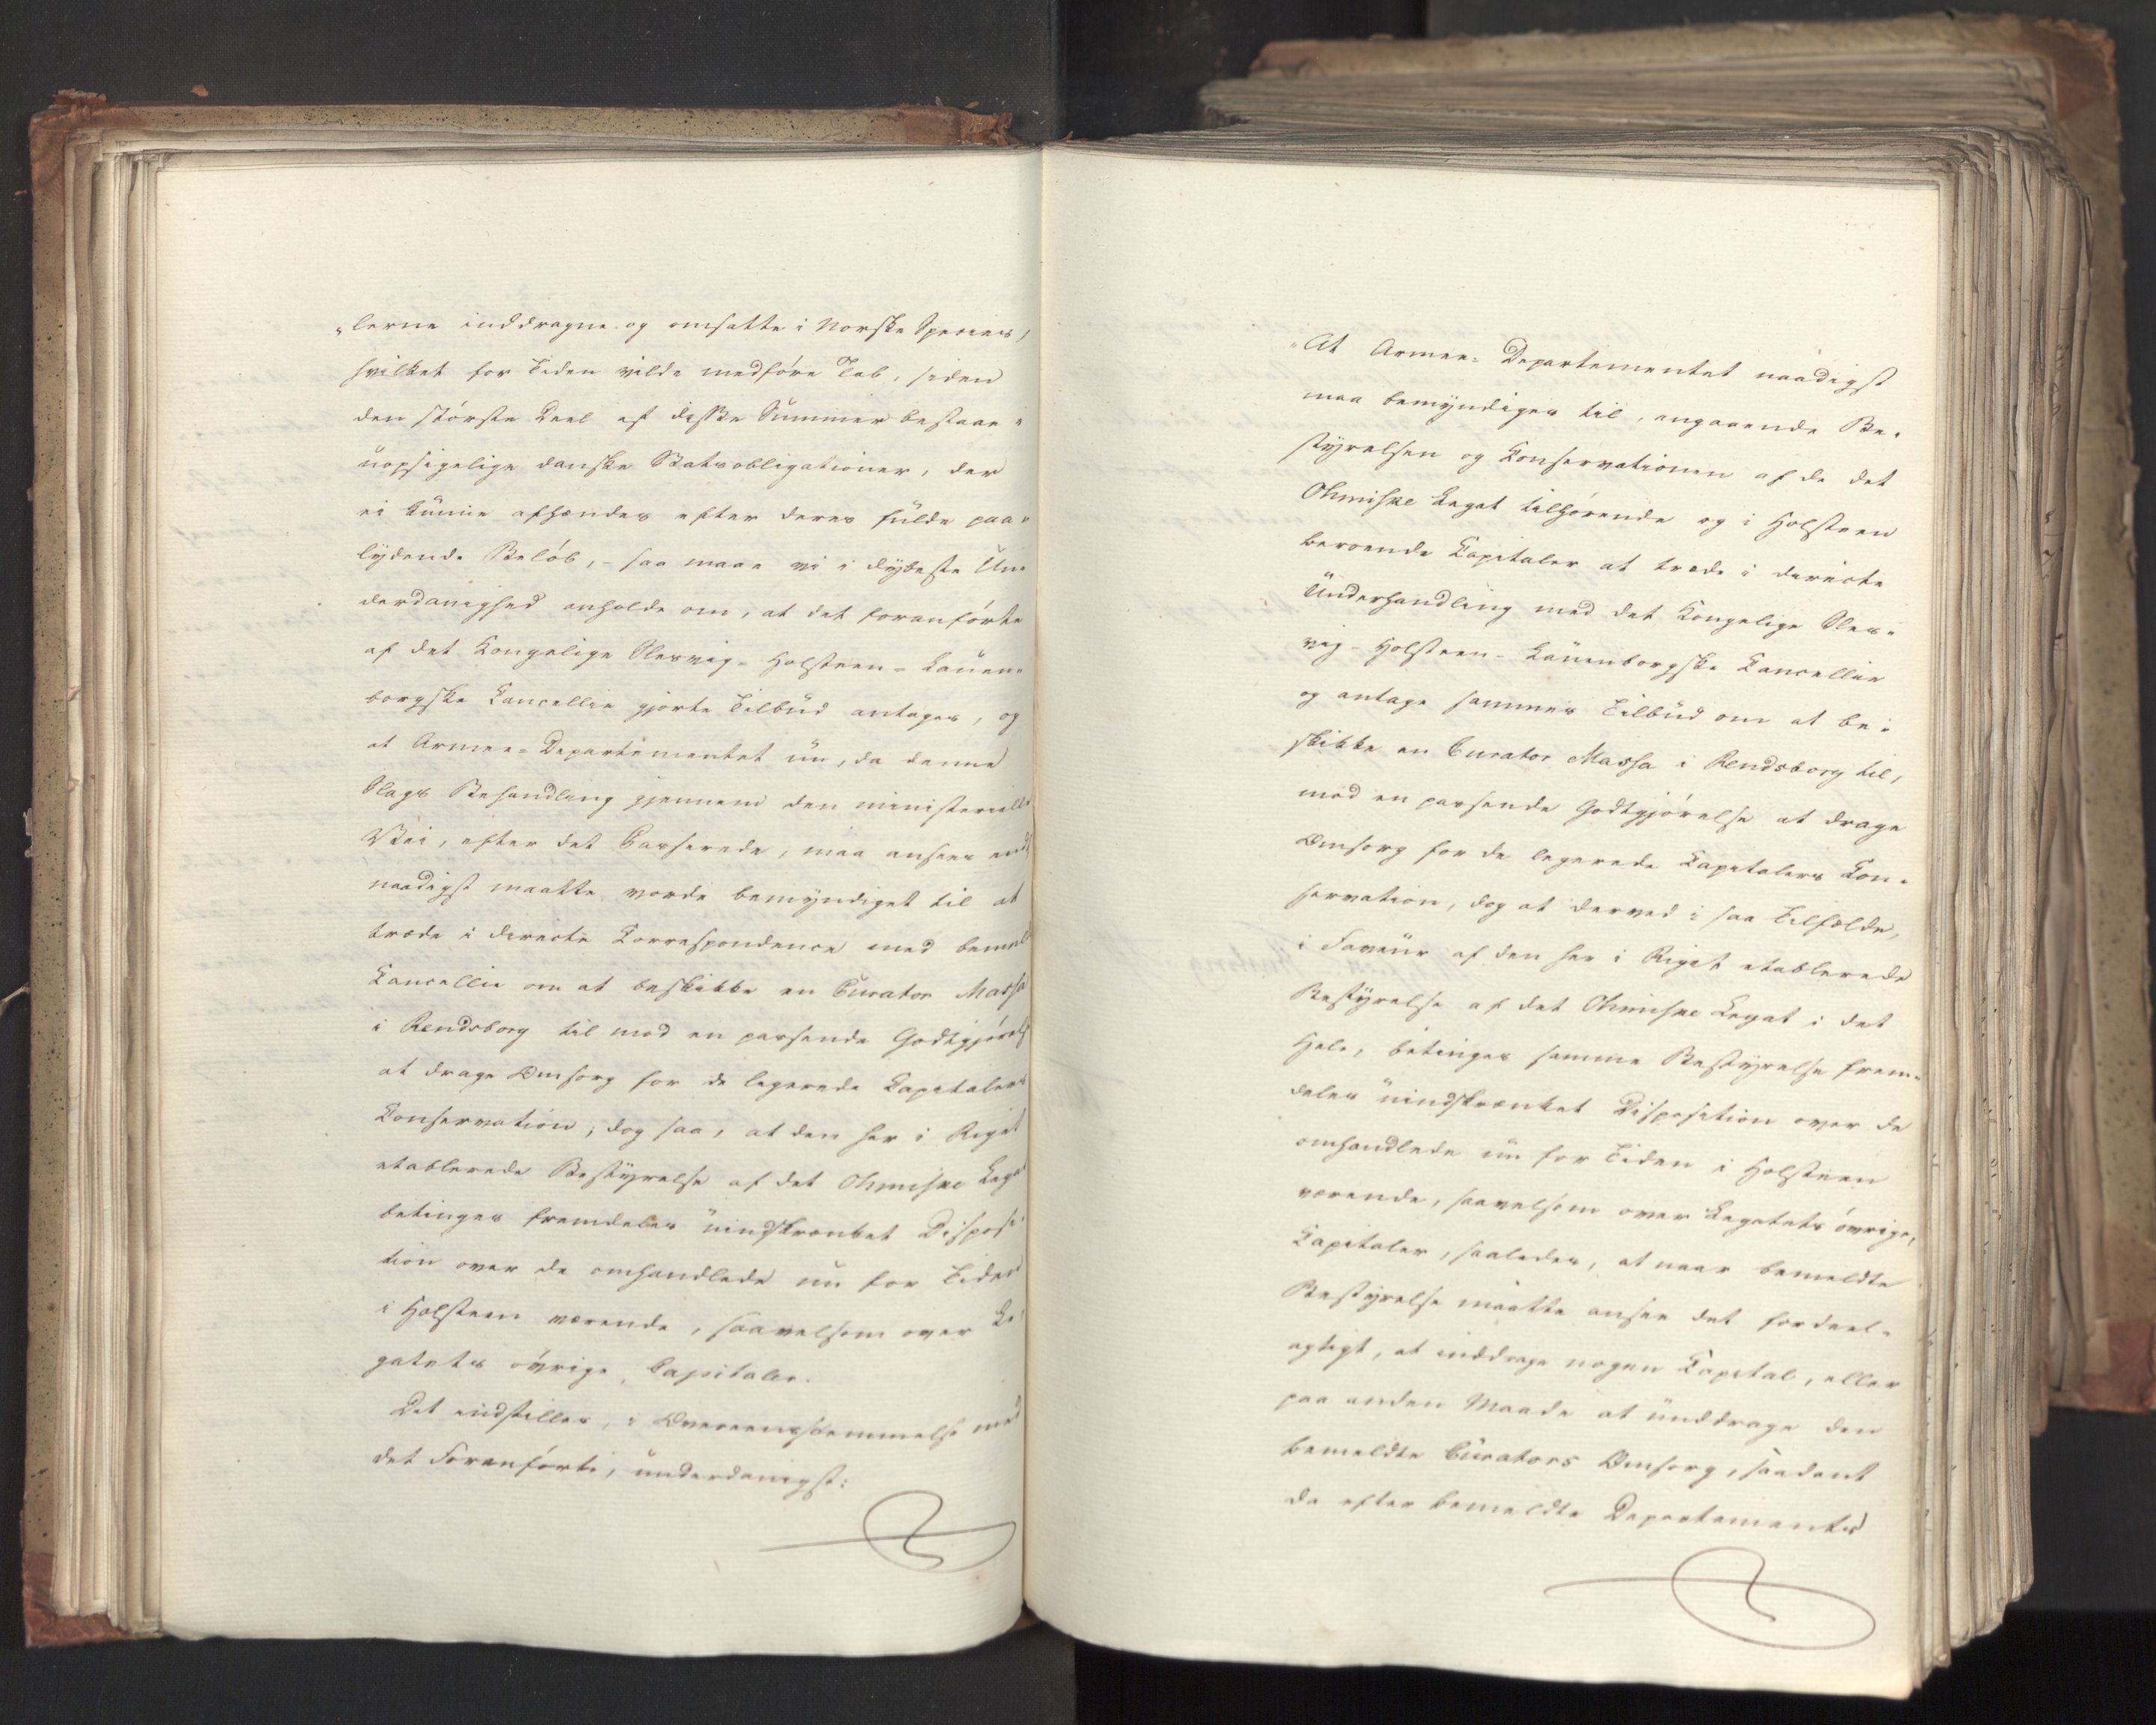 „lerne inddragne og omsatte i Norske Species,
hvilket for Tiden vilde medføre Tab, siden
den største Deel af disse Summer bestaae i
uopsigelige danske Statsobligationer, der
ei kunne afhændes efter deres fulde paa„
lydende Beløb, – saa maae vi i dybeste Un„
derdanighed anholde om, at det foranførte
af det Kongelige Slesvig-Holsteen-Lauen„
borgske Cancellie gjorte Tilbud antages, og
at Armee-Departementet nu, da denne
Slags Behandling gjennem den ministerielle
Vei, efter det Passerede, maa ansees endt
naadigst maatte vorde bemyndiget til at
træde i directe Correspondence med bemeldte
Cancellie om at beskikke en Curator Massæ
i Rendsborg til mod en passende Godtgjørelse
at drage Omsorg for de legerede Capitalers
Conservation; dog saa, at den her i Riget
etablerede Bestyrelse af det Ohmiske Legat
betinges fremdeles uindskrænket Disposi„
tion over de omhandlede nu for Tiden
i Holsteen værende, saavelsom over Le„
gatets øvrige Capitaler.
Det indstilles, i Overeensstemmelse med
det Foranførte, underdanigst:
„At Armee-Departementet naadigst
maa bemyndiges til, angaaende Be„
styrelsen og Conservationen af de det
Ohmiske Legat tilhørende og i Holsteen
beroende Capitaler at træde i directe
Underhandling med det Kongelige Sles„
vig-Holsteen-Lauenborgske Cancellie
og antage sammes Tilbud om at be„
skikke en Curator Massæ i Rendsborg til,
mod en passende Godtgjørelse at drage
Omsorg for de legerede Capitalers Con„
servation, dog at derved i saa Tilfælde,
i Faveur af den her i Riget etablerede
Bestyrelse af det Ohmiske Legat i det
Hele, betinges samme Bestyrelse frem„
deles uindskrænket Disposition over de
omhandlede nu for Tiden i Holsteen
værende, saavelsom over Legatets øvrige,
Capitaler, saaledes, at naar bemeldte
Bestyrelse maatte ansee det fordeel„
agtigt, at inddrage nogen Capital, eller
paa anden Maade at unddrage den
bemeldte Curators Omsorg, saadant
da efter bemeldte Departements